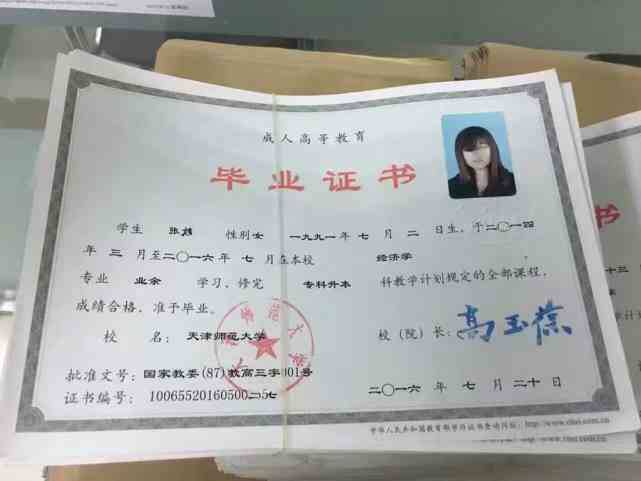 成人高等教育
毕业证书
学生 张 性别 女 一九九一年 七 月 二 日生，于二〇一四
年 三 月至二〇一六年 七 月在本校 经济学
专业 业余 学习，修完 专科升本 科教学计划规定的全部课程，
成绩合格，准予毕业。
校 名：天津师范大学 校（院）长：高玉葆
批准文号：国家教委(87)教高三字001号
证书编号：10065520160500 二〇一六年 七 月 二十日
中华人民共和国教育部学历证书查询网址：http://www.chsi.com.cn